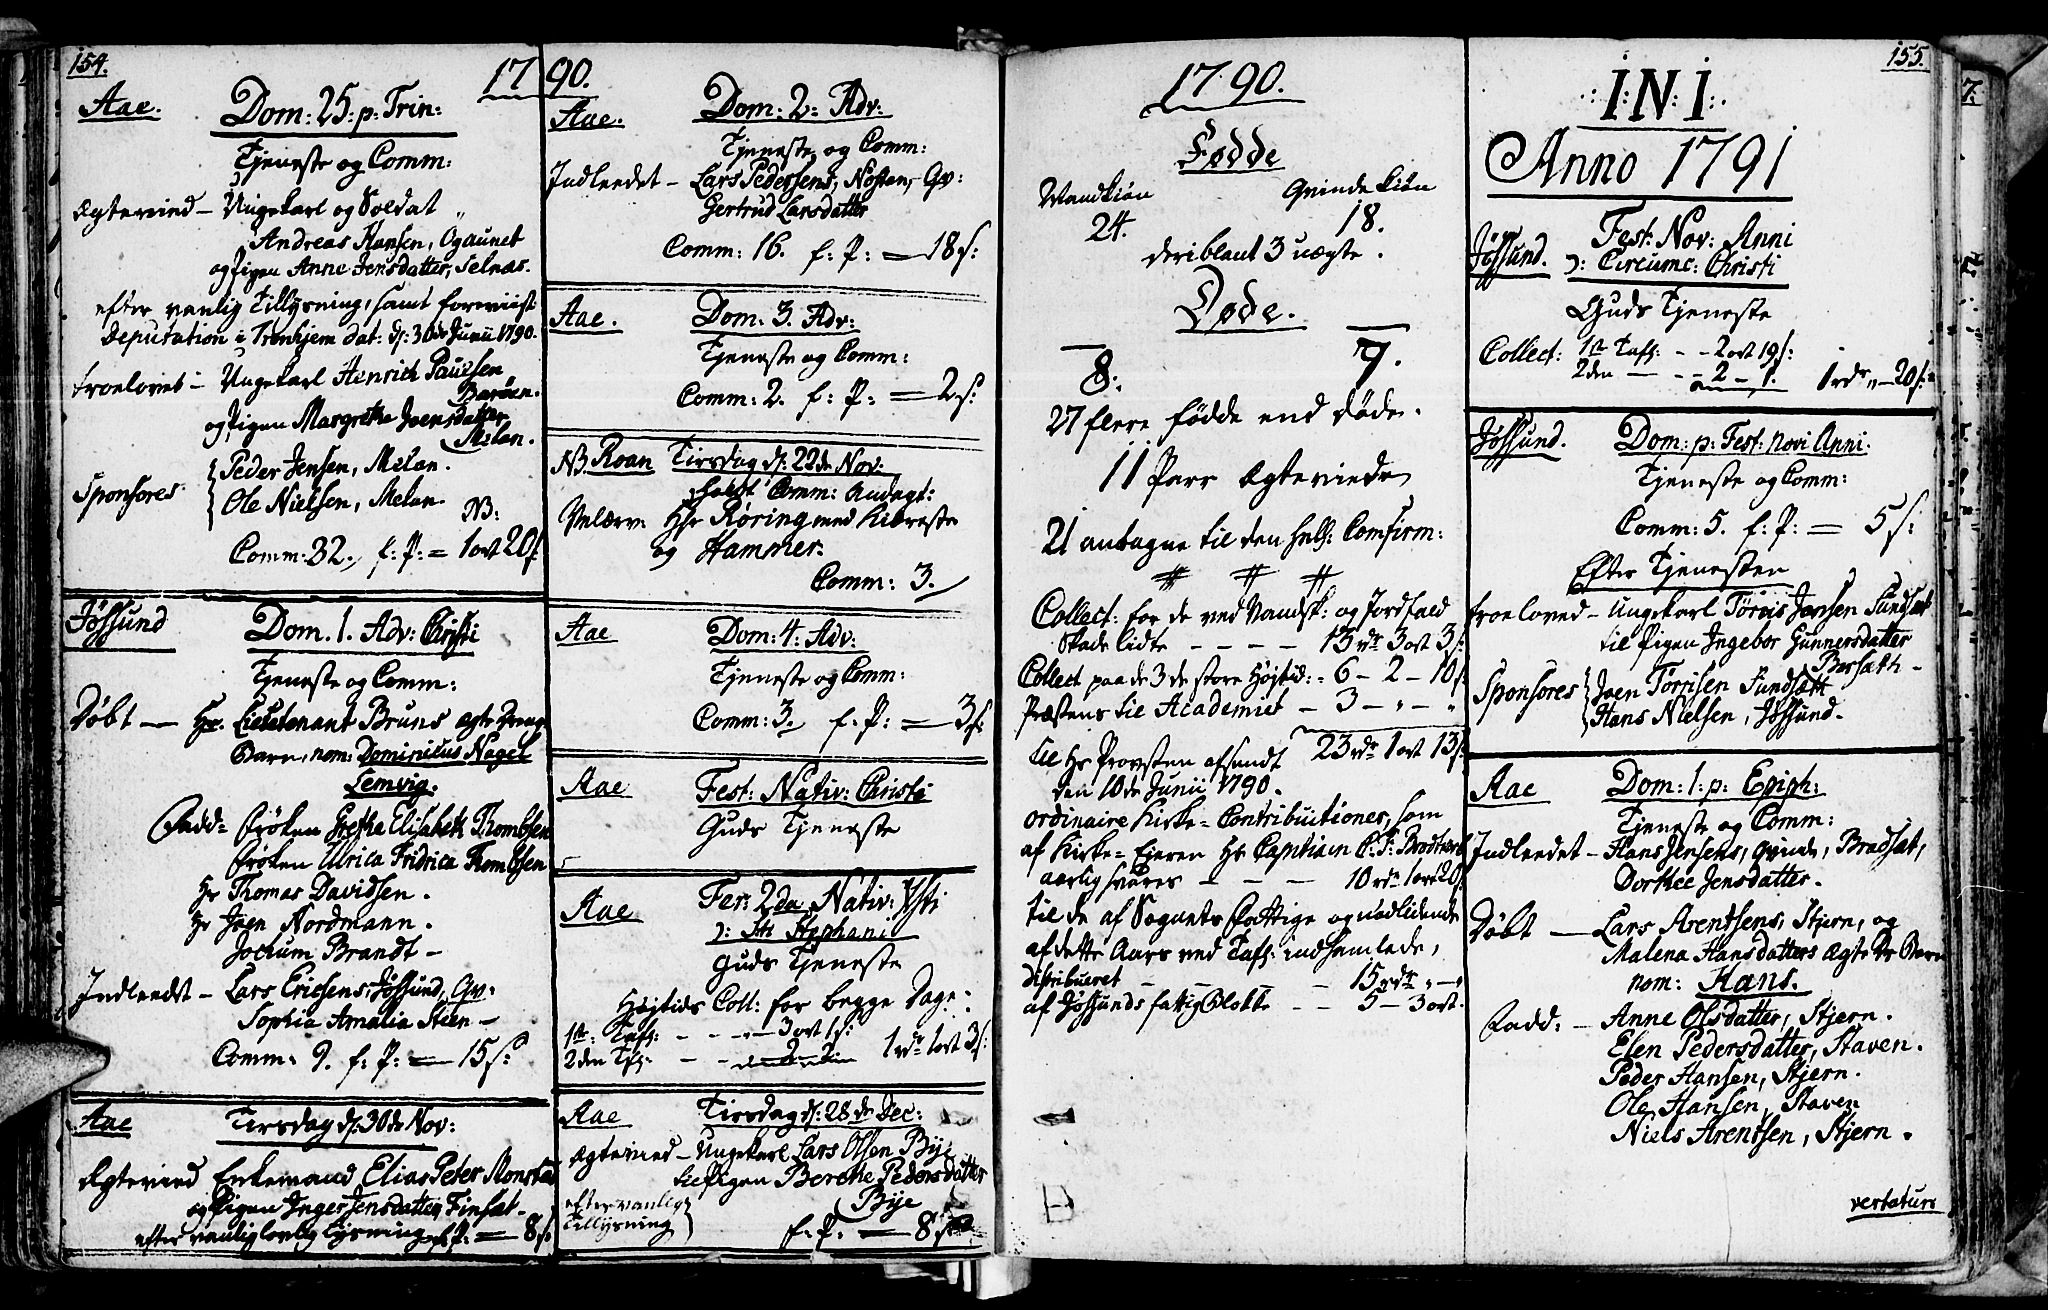 154.
1790.
Aae. Dom: 25: p: Trin:
Tjeneste og Comm:
Ægtevied – Ungekarl og Soldat
Andreas Hansen, Ogaunet
og Pigen Anne Jensdatter, Selnæs.
efter vanlig Tillysning, samt foreviist
Deputation i Tronhjem dat: d: 30de Junii 1790.
Troelovet – Ungekarl Henrich Paulsen
Barøen.
og Pigen Margrethe Joensdatter
Melan.
Sponsores Peder Jensen, Melan.
Ole Nielsen, Melan
NB:
Comm: 32. f: P: = 1 ort 20 s.
Jøssund Dom. 1. Adv: Christi
Tjeneste og Comm:
Døbt – Hr. Lieutenant Bruns ægte Drenge
Barn, nom: Dominicus Nagel
Lemvig.
Fadd: Frøken Grethe Elisabeth Thombsen
Frøken Ulrica Fridrica Thombsen
Hr Thomas Davidsen.
Hr Joen Nordmann.
Jochum Brandt –
Indleedet – Lars Ericsens Jøssund, Qv:
Sophia Amalia Steen –
Comm. 9. f: P: = 15 s:
Aae Tirsdag d: 30de Nov:
Ægtevied Enkemand Elias Peter Monstad
og Pigen Inger Jensdatter, Finsæt –
efter vanlig lovlig lysning f: P: = 8 s.
Aae. Dom: 2: Adv:
Tjeneste og Comm:
Indleedet – Lars Pedersens, Nesten, Qv:
Gertrud Larsdatter
Comm: 16. f: P: = 18 s:
Aae. Dom: 3. Adv:
Tjeneste og Comm:
Comm: 2. f: P: = 2 s:
NB. Roan Tirsdag d: 22de Nov:
holdt Comm: Andagt:
Velærv: Hr Røring med Kiæreste
og Hammer.
Comm: 3.
Aae Dom: 4: Adv:
Tjeneste og Comm:
Comm: 3. f: P: = 3 s.
Aae Fest: Nativ: Christi
Guds Tjeneste
Aae Fer: 2da Nativ: Xsti
ɔ: Sti Stephani
Guds Tjeneste
Højtids Coll: for begge Dage:
1ste Tafl: – – – 3 ort 1 s:
2den Tfl: – – – 2 – 2 1 rdr 1 ort 3 s:
Aae Tirsdag d: 28de Dec:
Ægtevied – Ungekarl Lars Olsen Bye
til Pigen Berethe Pedersdatter
Bye
efter vanlig
Tillysning
f. P. = 8 s.
1790.
Fødde
Mandkiøn Qvindekiøn
24. 18.
deriblant 3 uægte.
Døde.
8. 7.
27 flere fødde end døde.
11 Parr Ægteviede
21 antagne til den hell: Comfirm:
Collect: for de ved Vandsk: og Jordfald
Skade lidte – – – – 13 rdr 3 ort 3 s:
Collect paa de 3de store Højtid: = 6 – 2 – 10 s.
Præstens til Academiet – 3 – " – "
til Hr Provsten afsendt 23 rdr 1 ort 13 s.
den 10de Junii 1790.
Ordinaire Kirke = Contributioner, som
af Kirke = Ejeren Hr Capitain C: F: Brodtkorb
aarlig svares – – – 10 rdr 1 ort 20 s.
til de af Sognets Fattige og nødlidende
af dette Aars ved Tafl: indsamlede,
distribueret – – – 15 rdr " – "
af Jøssunds fattig Blokke – – 5 – 3 ort.
155.
I: N: I:
Anno 1791
Jøssund. Fest: Nov: Anni
ɔ: Circumc: Christi
Guds Tjeneste
Collect: 1ste Tafl: – – 2 ort 19 s:
2den – – – 2 – 1. 1 rdr " – 20 s:
Jøssund. Dom: p: Fest: novi Anni.
Tjeneste og Comm:
Comm: 5. f: P: = 5 s:
Efter Tjenesten
Troeloved – Ungekarl Tørris Jensen Sundsæt
til Pigen Ingebor Gunnersdatter
Bersætt –
Sponsores Joen Torrisen Sundsætt
Hans Nielsen, Jøssund.
Aae Dom: 1: p: Epiph:
Tjeneste og Comm:
Indleedet – Hans Jensens, Qvinde, Bradsæt,
Dorthee Jensdatter.
Døbt – Lars Arentsens, Stjern, og
Malena Hansdatters ægte Dr Barn
nom: Hans.
Fadd: – Anne Olsdatter, Stjern.
Elen Pedersdatter, Staven.
Peder Hansen, Stjern.
Ole Hansen, Staven
Niels Arentsen, Stjern.
vertatur
7.